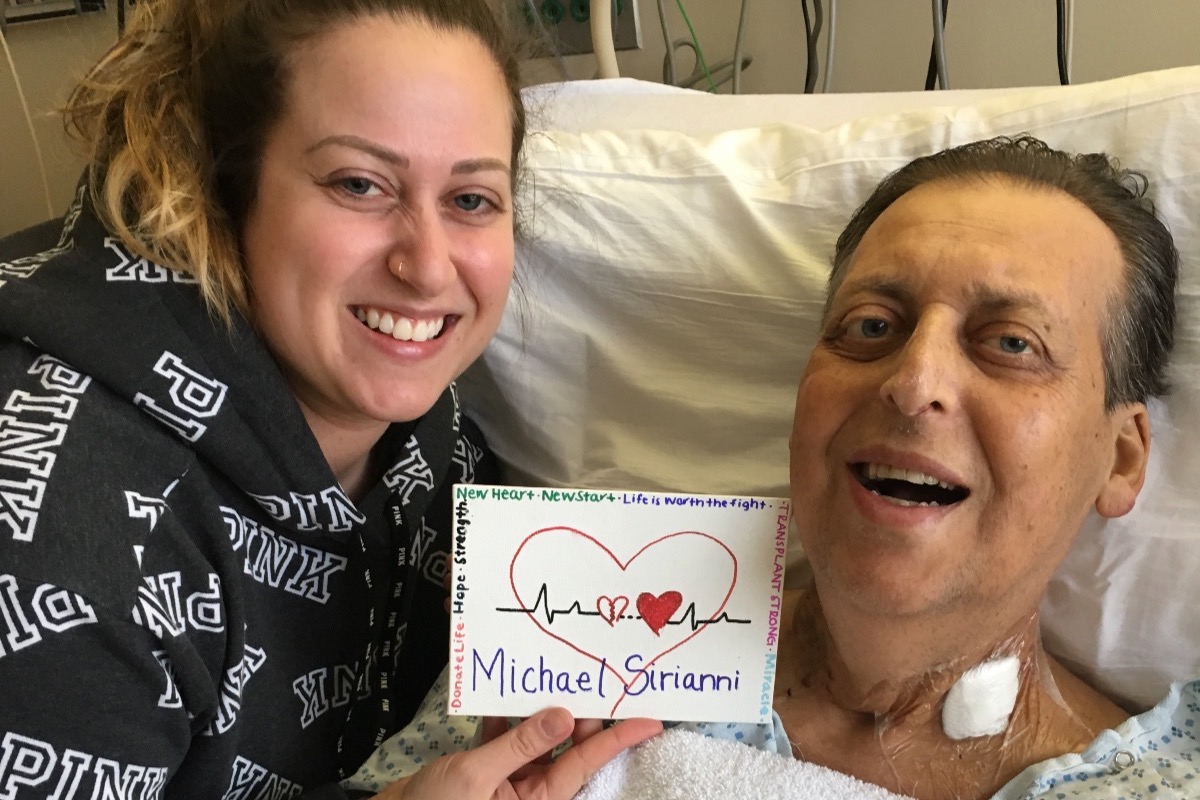 New Heart · New Start · Life is worth the fight ·
TRANSPLANT STRONG · Miracle
· Donate Life · Hope · Strength
Michael Sirianni
PINK
PINK
PINK
PINK
PINK
PINK
PINK
PINK